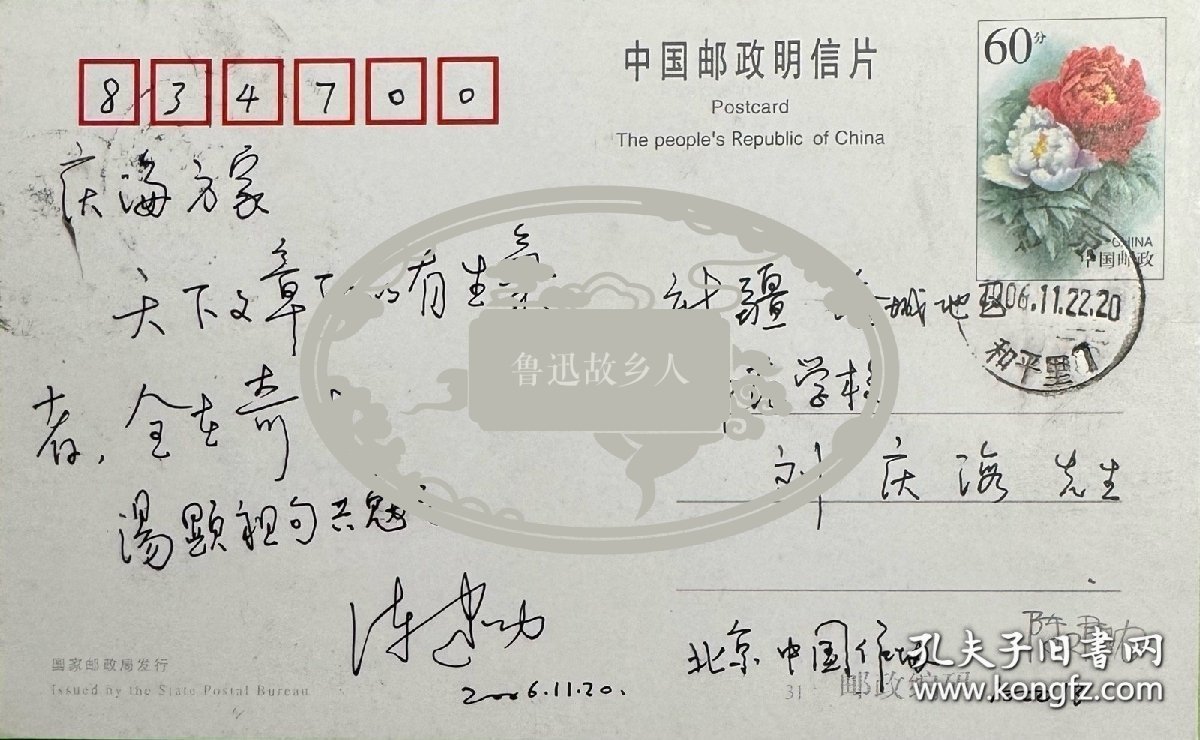 834700
中国邮政明信片
Postcard
The people's Republic of China
60分
CHINA
中国邮政
2006.11.22.20
和平里1
庆海方家
天下文章所以有生气
者，全在奇
湯顯祖句共勉
陈建功
2006.11.20.
新疆 塔城地区
学校
刘庆海先生
北京中国作协
陈建功
国家邮政局发行
Issued by the State Postal Bureau
31
邮政编码
鲁迅故乡人
孔夫子旧书网
www.kongfz.com